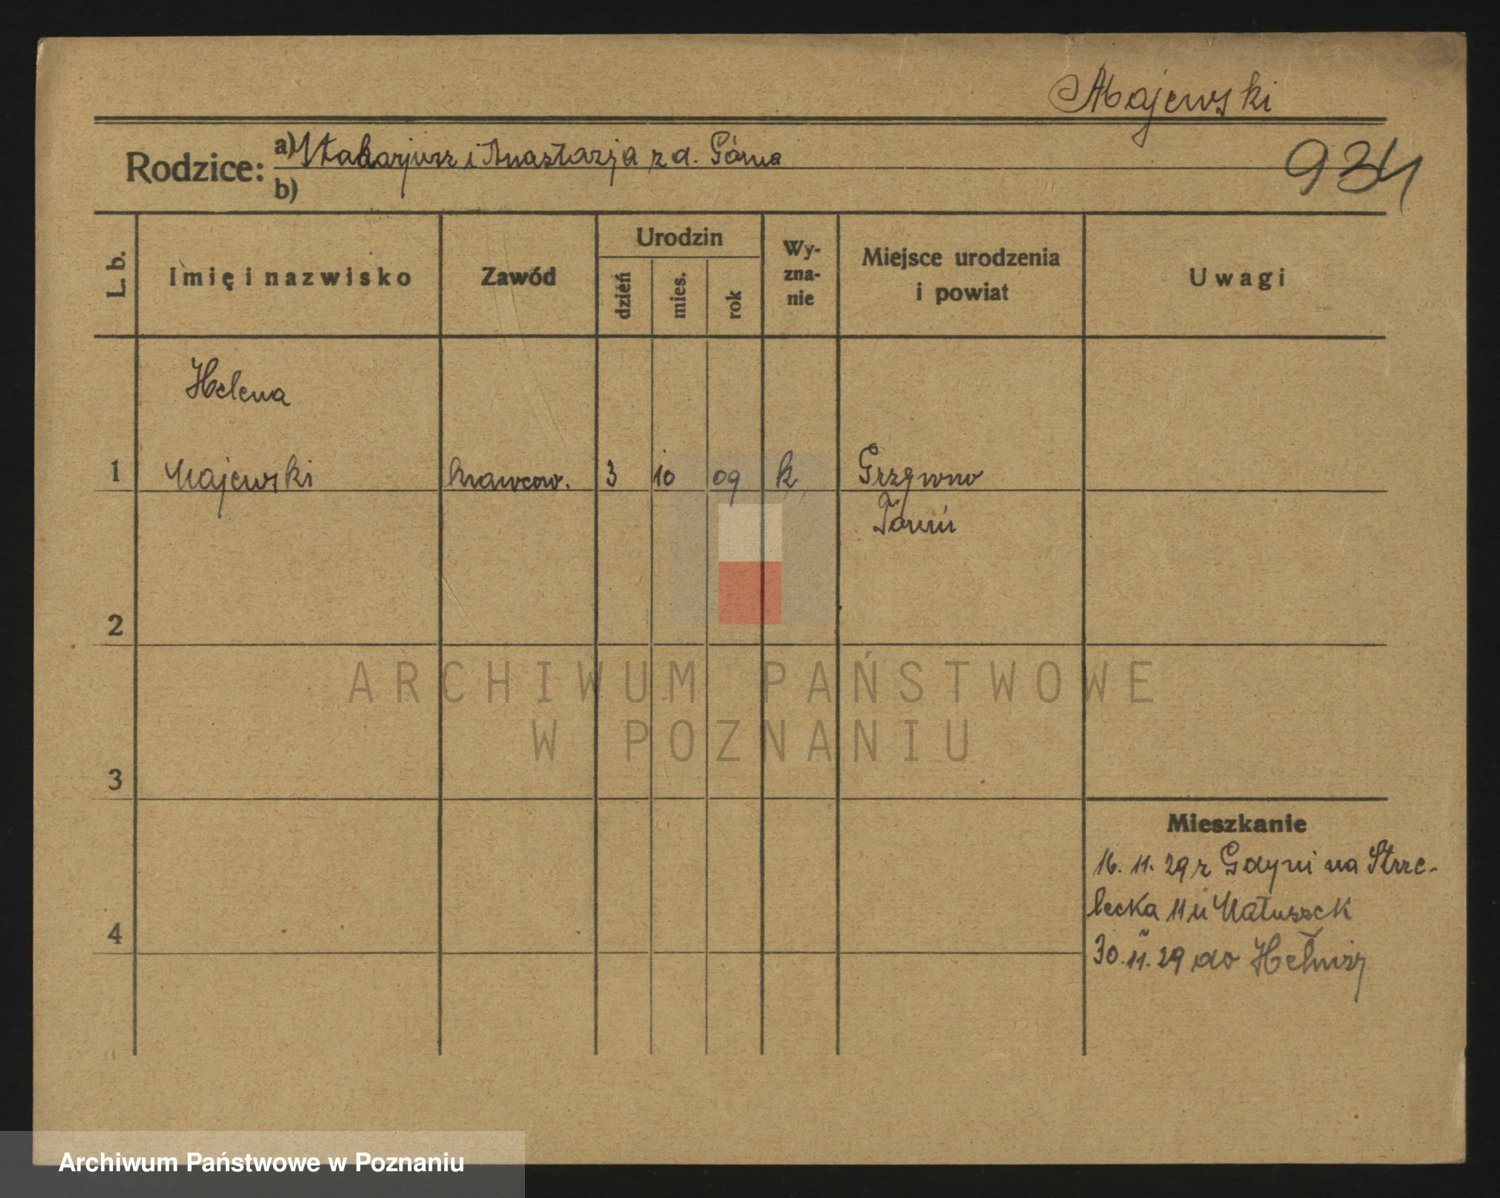 Majewski
Rodzice: a) Makarjusz i Anastazja z d. Górna
b)
934
L. b.
Imię i nazwisko
Zawód
Urodzin
dzień
mies.
rok
Wy-
zna-
nie
Miejsce urodzenia
i powiat
Uwagi
Helena
1 Majewski krawcow. 3 10 09 k Grzywno
Toruń
2
3
4
Mieszkanie
16. 11. 29 z Gdyni na Strze-
lecka 11 u Matuszek
30. 11. 29 do
ARCHIWUM PAŃSTWOWE
W POZNANIU
Archiwum Państwowe w Poznaniu